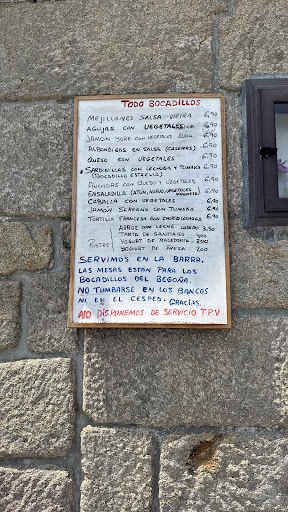 TODO BOCADILLOS
MEJILLONES SALSA VIEIRA 6,90
AGUJAS CON VEGETALES 6,90
JAMÓN YORK CON VEGETALES 6,90
ALBONDIGAS EN SALSA (CASERAS) 6,90
QUESO CON VEGETALES 6,90
SARDINILLAS CON LECHUGA Y TUMACA 6,90
(BOCADILLO ESTRELLA)
ANCHOAS CON QUESO Y VEGETALES 6,90
ENSALADILLA (ATÚN, HUEVO, VEGETALES 6,90
CABALLA CON VEGETAL 6,90
JAMÓN SERRANO CON TUMACA 6,90
TORTILLA FRANCESA CON CHORIZO 6,90
ARROZ CON LECHE CASERO 3,50
TARTA DE SANTIAGO 4,00
POSTRE YOGURT DE MACEDONIA 2,00
YOGURT DE FRESA 2,00
SERVIMOS EN LA BARRA.
LAS MESAS ESTAN PARA LOS
BOCADILLOS DEL BEGOÑA.
NO TUMBARSE EN LOS BANCOS
NI EN EL CESPED. GRACIAS.
NO DISPONEMOS DE SERVICIO T.P.V